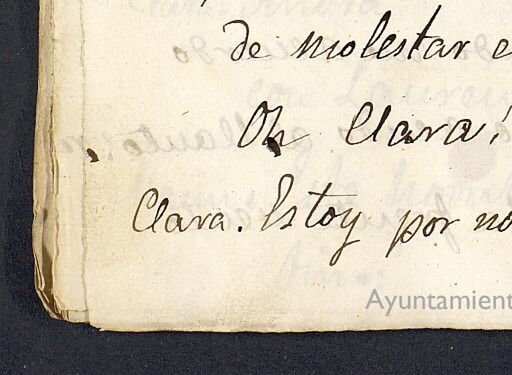 de molestar
Oh Clara!
Clara. Estoy por no
Ayuntamient